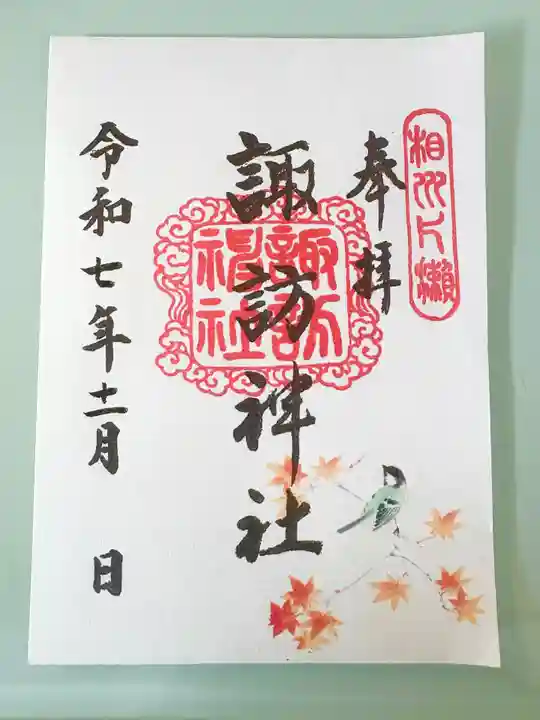 相州片瀬
奉拝
諏訪神社
諏訪神社
令和七年十一月 日